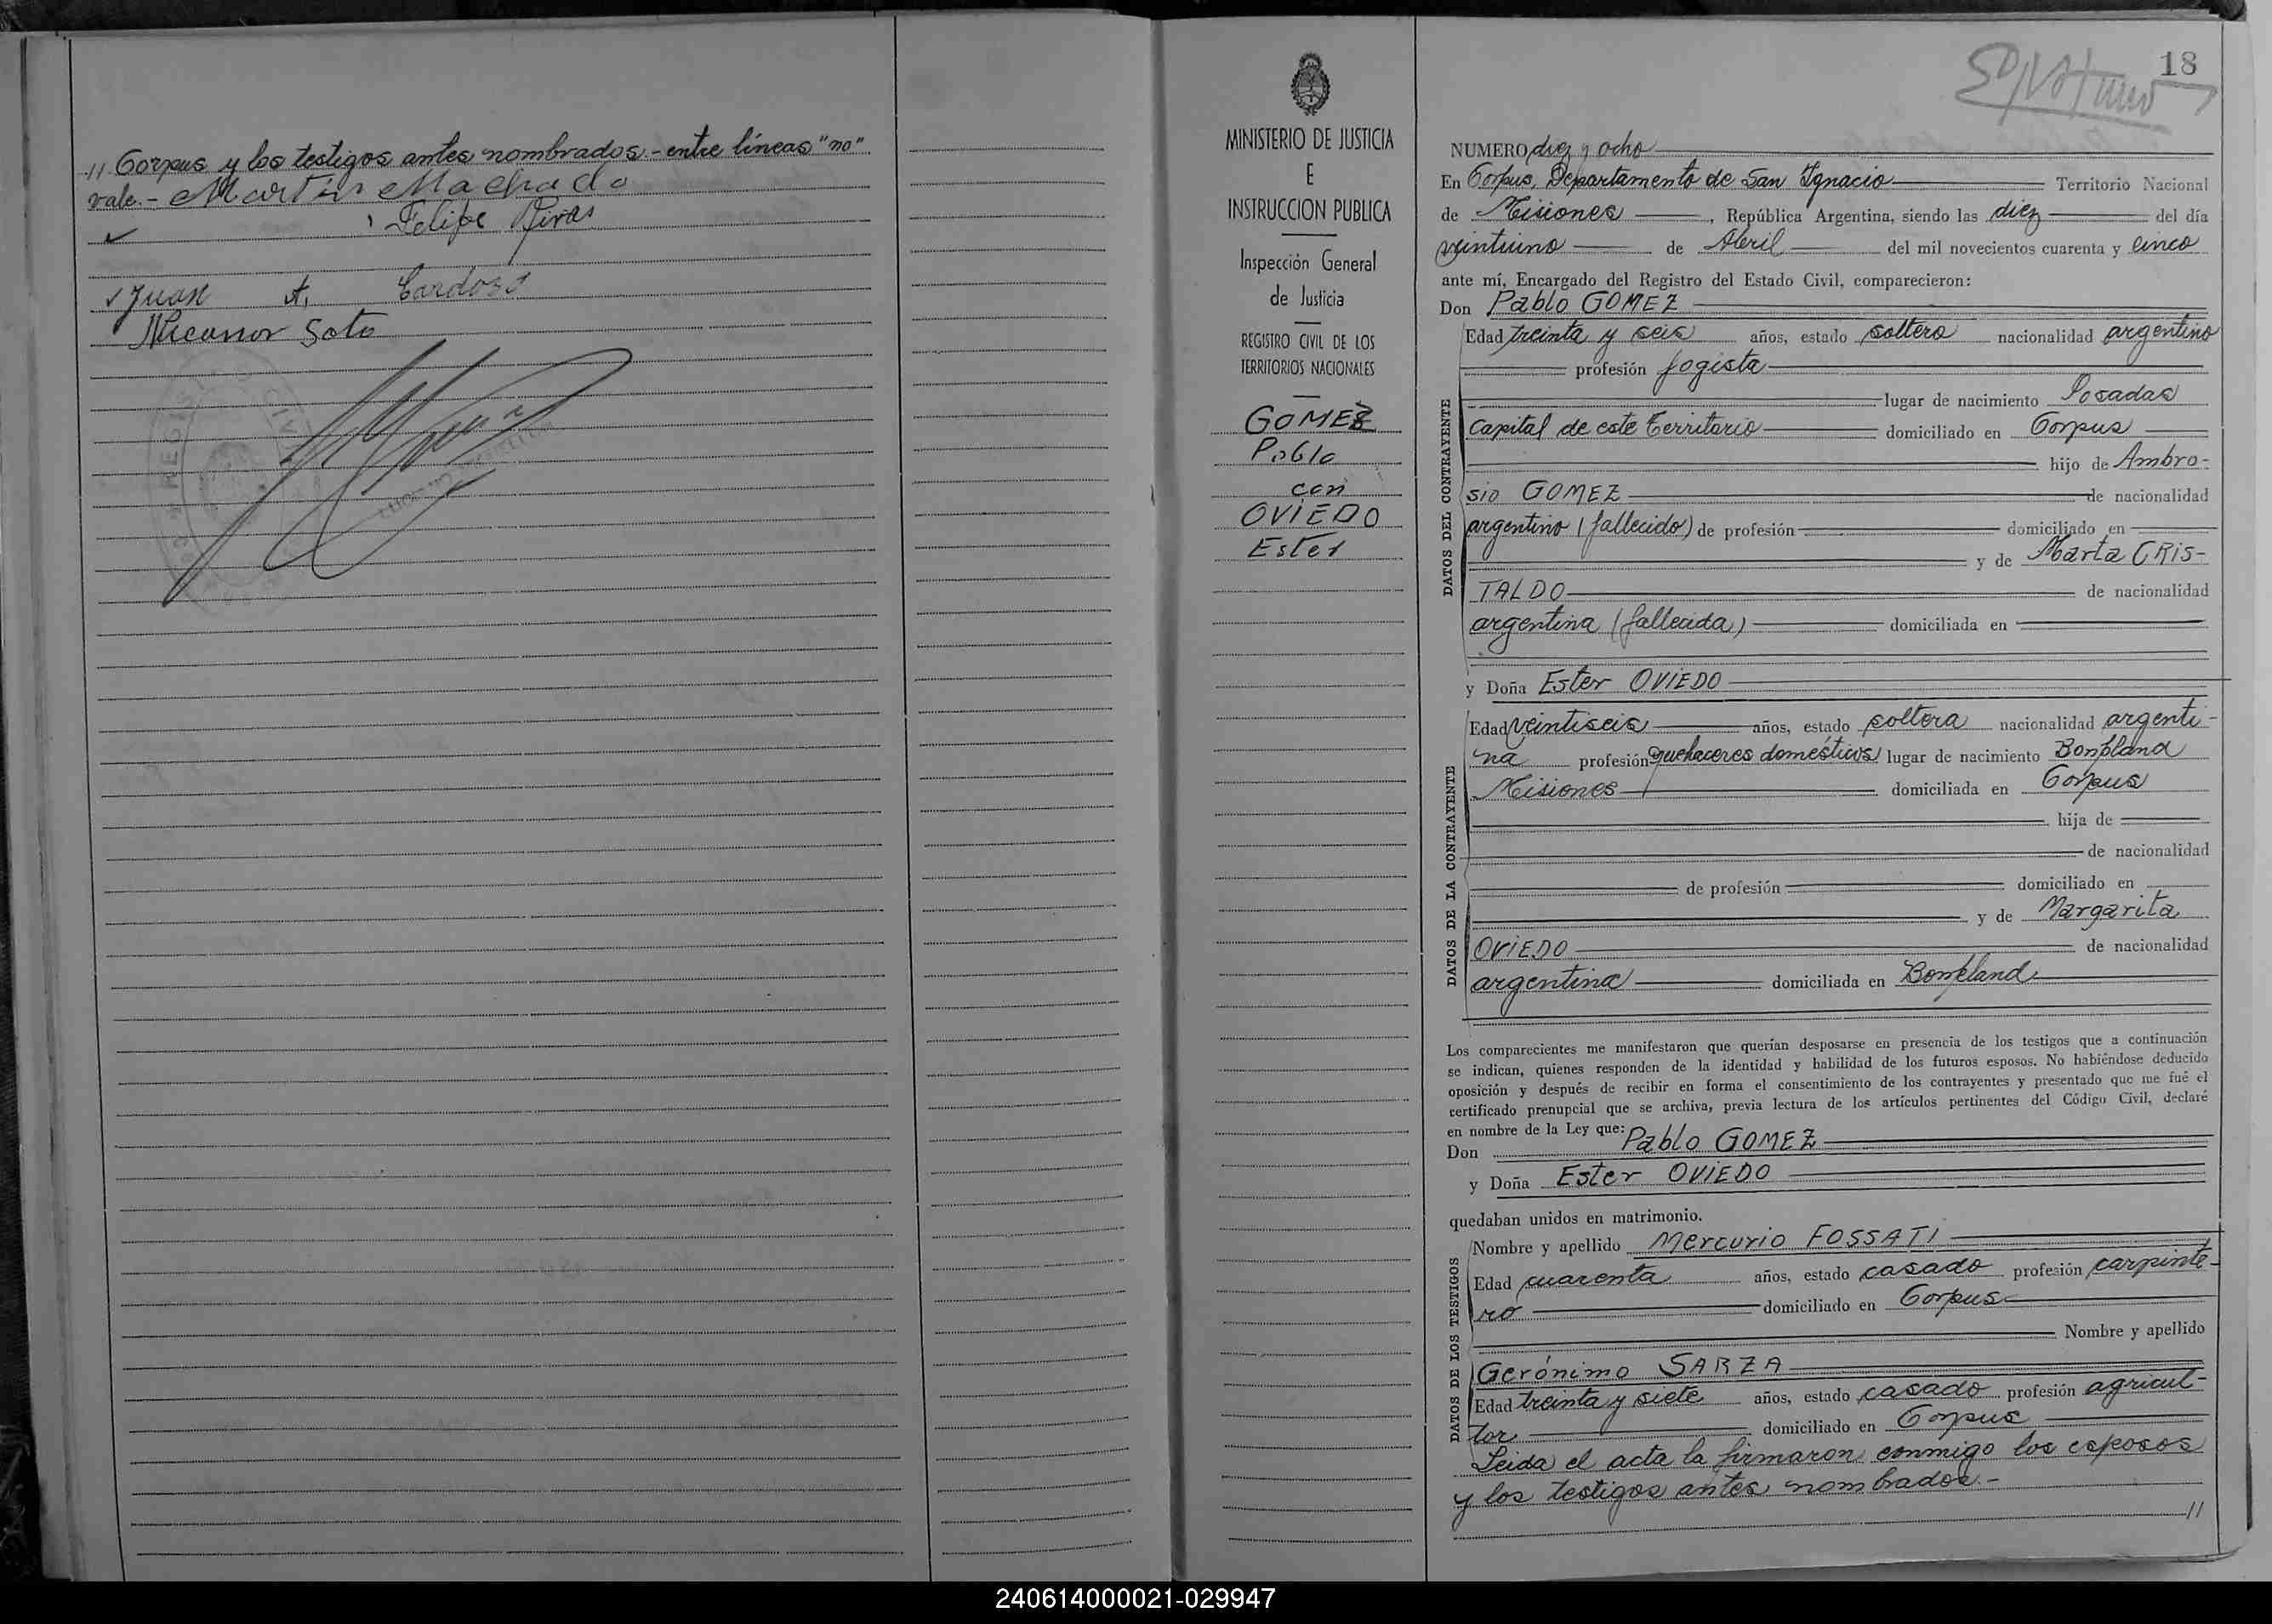 // Corpus y los testigos antes nombrados.- entre líneas "no"
vale.- Martin Machado
Felipe Rivas
Juan A. Cardozo
Nicanor Soto
MINISTERIO DE JUSTICIA
E
INSTRUCCION PUBLICA
Inspección General
de Justicia
REGISTRO CIVIL DE LOS
TERRITORIOS NACIONALES
GOMEZ
Pablo
con
OVIEDO
Ester
18
NUMERO diez y ocho
En Corpus, Departamento de San Ignacio Territorio Nacional
de Misiones, República Argentina, siendo las diez del día
veintiuno de Abril del mil novecientos cuarenta y cinco
ante mí, Encargado del Registro del Estado Civil, comparecieron:
Don Pablo GOMEZ
DATOS DEL CONTRAYENTE
Edad treinta y seis años, estado soltero nacionalidad argentino
profesión fogista
lugar de nacimiento Posadas
Capital de este Territorio domiciliado en Corpus
hijo de Ambro-
sio GOMEZ de nacionalidad
argentino (fallecido) de profesión domiciliado en
y de Marta CRIS-
TALDO de nacionalidad
argentina (fallecida) domiciliada en
y Doña Ester OVIEDO
DATOS DE LA CONTRAYENTE
Edad veintiseis años, estado soltera nacionalidad argenti-
na profesión quehaceres domésticos lugar de nacimiento Bonpland
Misiones domiciliada en Corpus
hija de
de nacionalidad
de profesión domiciliado en
y de Margarita
OVIEDO de nacionalidad
argentina domiciliada en Bonpland
Los comparecientes me manifestaron que querían desposarse en presencia de los testigos que a continuación
se indican, quienes responden de la identidad y habilidad de los futuros esposos. No habiéndose deducido
oposición y después de recibir en forma el consentimiento de los contrayentes y presentado que me fué el
certificado prenupcial que se archiva, previa lectura de los artículos pertinentes del Código Civil, declaré
en nombre de la Ley que:
Don Pablo GOMEZ
y Doña Ester OVIEDO
quedaban unidos en matrimonio.
DATOS DE LOS TESTIGOS
Nombre y apellido Mercurio FOSSATI
Edad cuarenta años, estado casado profesión carpinte-
ro domiciliado en Corpus
Nombre y apellido
Gerónimo SARZA
Edad treinta y siete años, estado casado profesión agricul-
tor domiciliado en Corpus
Leida el acta la firmaron conmigo los esposos
y los testigos antes nombrados.-
//
240614000021-029947